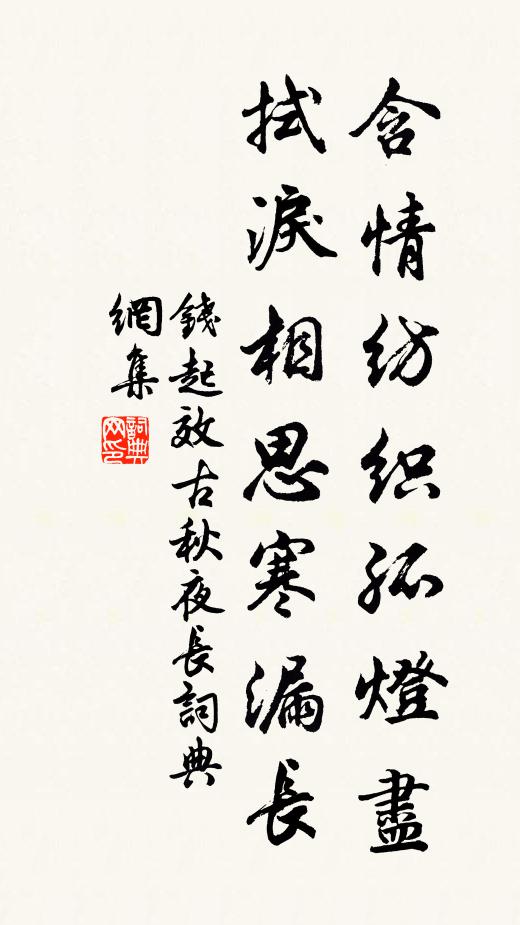 含情纺织孤燈盡
拭淚相思寒漏長
錢起效古秋夜長詞典
網集
詞典
网印